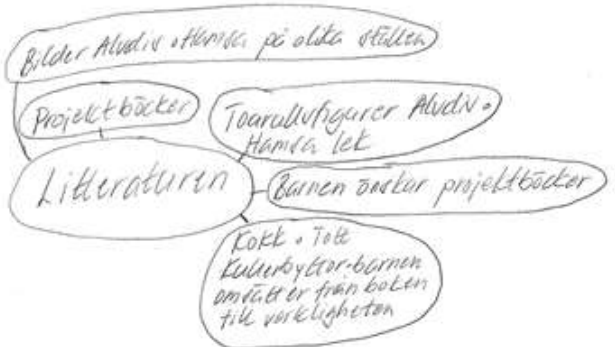 Bilder Aludiv o Hamsa på olika ställen
Projektböcker
Toarullsfigurer Aludiv o
Hamsa lek
Litteraturen
Barnen önskar projektböcker
Kokk o Tott
barnen
omsätter från boken
till verkligheten